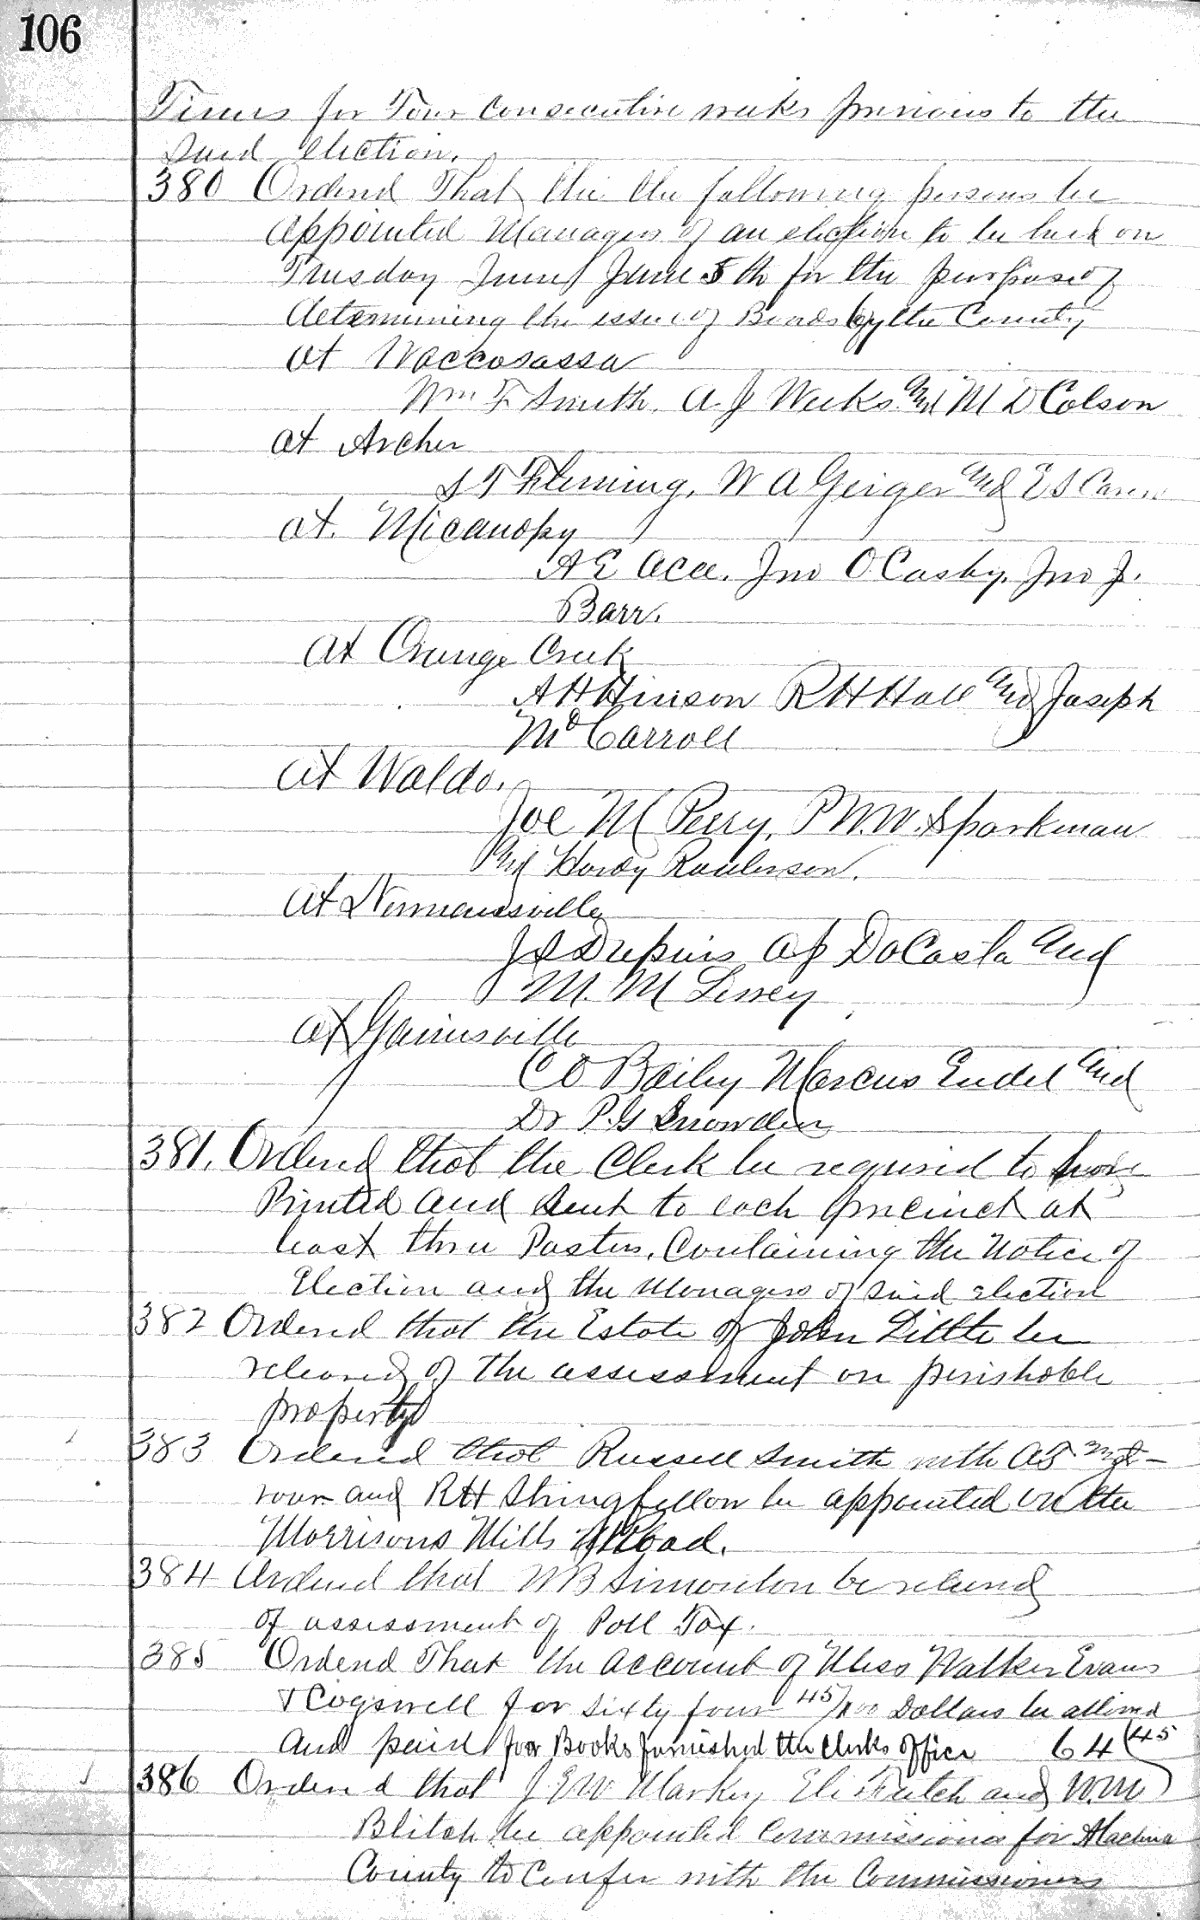 106
Times for Four Consecutive weeks previous to the
Said Election.
380 Ordered That the the following persons be
appointed Managers of an election to be held on
Tuesday June 5th for the purpose of
determining the issue of Bonds by the County
at Waccosassa
Wm F Smith. A. J Weeks and M D Colson
at Archer
S T Fleming. W A Geiger and E S
at. Micanopy
A E Jno O Casky. Jno J.
Barr.
at Orange Creek
A H Hinson R H Hall and Joseph
McCarroll
at Waldo.
Joe M Perry. P W. W. Sparkman
and Hardy Raulerson.
at Newnansville
J S Dupuis A J DaCosta and
M. M
at Gainesville
C O Bailey Marcus Endel and
Dr P. G Snowden
381. Ordered that the Clerk be required to have
Printed and Sent to each precinct at
least three Posters. Containing the Notice of
Election and the Managers of Said election
382 Ordered that the Estate of John be
relieved of the assessment on perishable
property
383 Ordered that Russell Smith with A S
and RH Stringfellow be appointed on the
Morrisons Mills Road.
384 Ordered that W B Simonton be relieved
of assessment of Poll Tax.
385 Ordered That the Account of Mess Walker Evans
& Cogswell for Sixty four 45/100 Dollars be allowed
and paid for Books furnished the Clerks office 64 45
386 Ordered that J E W Markey and Wm
Blitch be appointed Commissioners for Alachua
County to Confer with the Commissioners